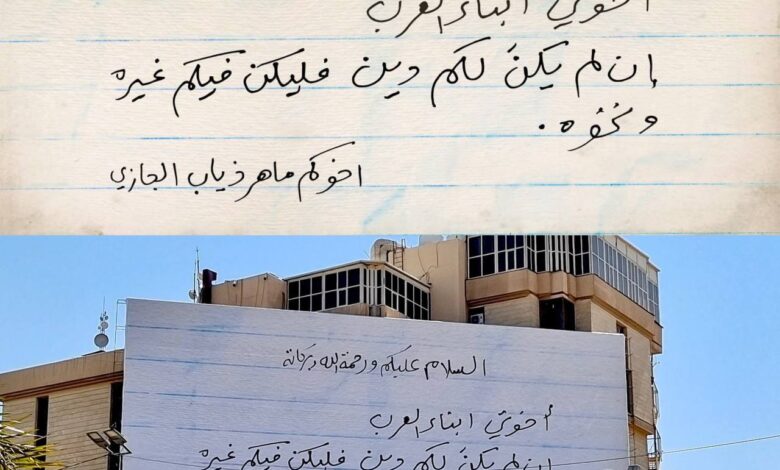 أخوتي ابناء العرب
إن لم يكنَ لكم دين فليكن فيكم غيره
ونخوه.
اخوكم ماهر ذياب الجازي
السلام عليكم ورحمة الله وبركاتة
أخوتي ابناء العرب
إن لم يكنَ لكم دين فليكن فيكم غيره